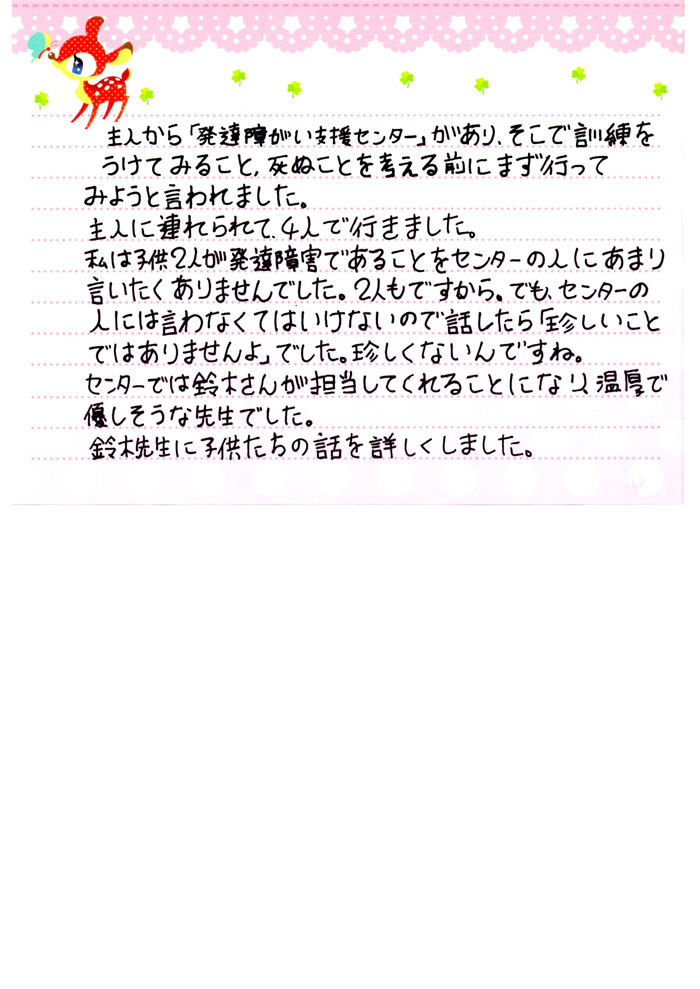 主人から「発達障がい支援センター」があり、そこで訓練を
うけてみること、死ぬことを考える前にまず行って
みようと言われました。
主人に連れられて、4人で行きました。
私は子供2人が発達障害であることをセンターの人にあまり
言いたくありませんでした。2人もですから。でも、センターの
人には言わなくてはいけないので話したら「珍しいこと
ではありませんよ」でした。珍しくないんですね。
センターでは鈴木さんが担当してくれることになり、温厚で
優しそうな先生でした。
鈴木先生に子供たちの話を詳しくしました。